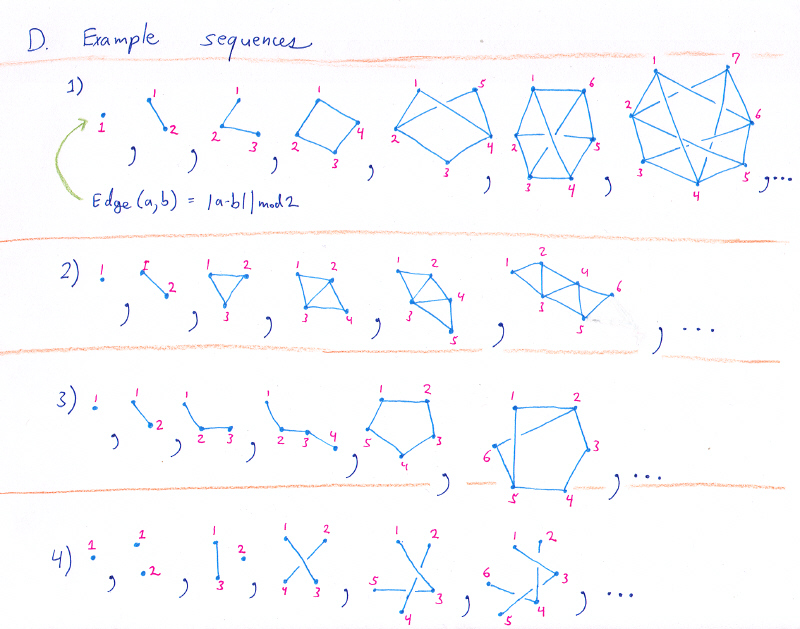 D. Example sequences
1)
1
1 2
1 2 3
1 2 3 4
1 5 2 4 3
1 6 2 5 3 4
1 7 2 6 3 5 4
, , , , , , , ...
Edge(a,b) = |a-b| mod 2
2)
1
1 2
1 2 3
1 2 3 4
1 2 3 4 5
1 2 3 4 5 6
, , , , , , ...
3)
1
1 2
1 2 3
1 2 3 4
1 2 3 4 5
1 2 3 4 5 6
, , , , , , ...
4)
1
1 2
1 2 3
1 2 4 3
1 2 5 3 4
1 2 6 3 4 5
, , , , , , ...